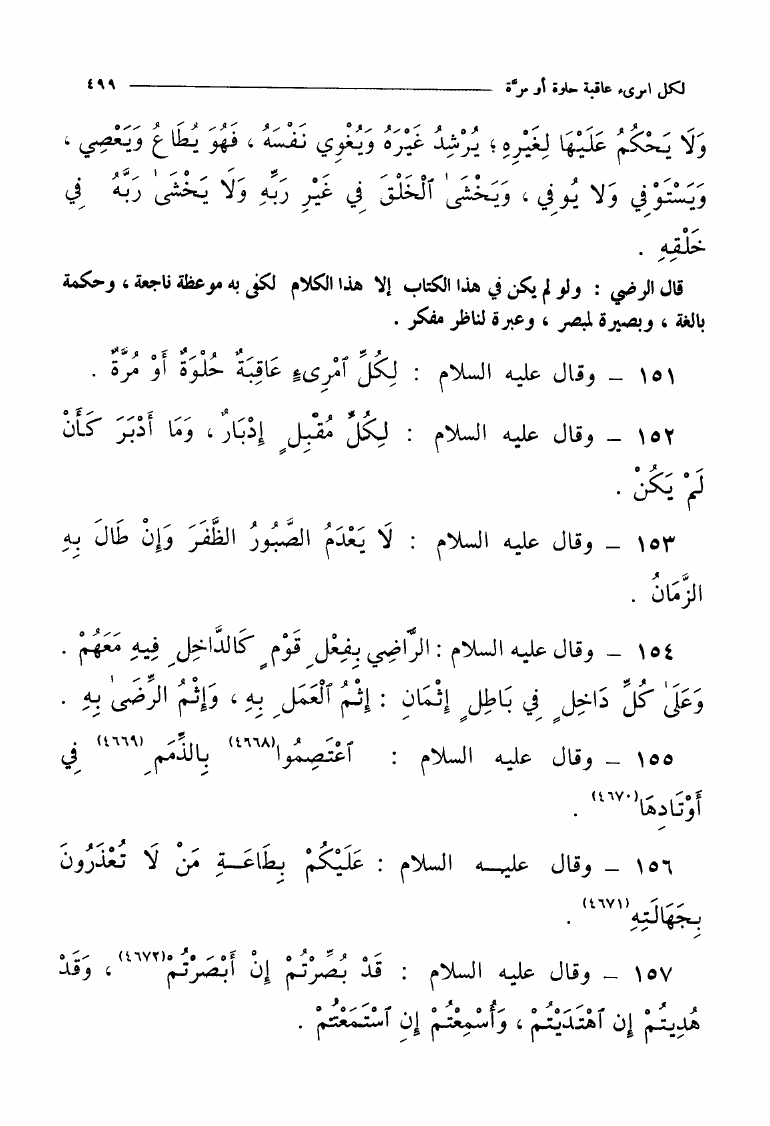 لكل امرىء عاقبة حلوة أو مرّة ٤٩٩
وَلَا يَحْكُمُ عَلَيْهَا لِغَيْرِهِ ؛ يُرْشِدُ غَيْرَهُ وَيُغْوِي نَفْسَهُ ، فَهُوَ يُطَاعُ وَيَعْصِي ،
وَيَسْتَوْفِي وَلَا يُوفِي ، وَيَخْشَىٰ ٱلْخَلْقَ فِي غَيْرِ رَبِّهِ وَلَا يَخْشَىٰ رَبَّهُ فِي
خَلْقِهِ .
قال الرضي : ولو لم يكن في هذا الكتاب إلا هذا الكلام لكفى به موعظة ناجعة ، وحكمة
بالغة ، وبصيرة لمبصر ، وعبرة لناظر مفكر .
١٥١ – وقال عليه السلام : لِكُلِّ ٱمْرِىءٍ عَاقِبَةٌ حُلْوَةٌ أَوْ مُرَّةٌ .
١٥٢ – وقال عليه السلام : لِكُلِّ مُقْبِلٍ إِدْبَارٌ ، وَمَا أَدْبَرَ كَأَنْ
لَمْ يَكُنْ .
١٥٣ – وقال عليه السلام : لَا يَعْدَمُ الصَّبُورُ الظَّفَرَ وَإِنْ طَالَ بِهِ
الزَّمَانُ .
١٥٤ – وقال عليه السلام : الرَّاضِي بِفِعْلِ قَوْمٍ كَالدَّاخِلِ فِيهِ مَعَهُمْ .
وَعَلَىٰ كُلِّ دَاخِلٍ فِي بَاطِلٍ إِثْمَانِ : إِثْمُ ٱلْعَمَلِ بِهِ ، وَإِثْمُ الرِّضَىٰ بِهِ .
١٥٥ – وقال عليه السلام : ٱعْتَصِمُوا(٤٦٦٨) بِالذِّمَمِ(٤٦٦٩) فِي
أَوْتَادِهَا(٤٦٧٠) .
١٥٦ – وقال عليـه السلام : عَلَيْكُمْ بِطَاعَـةِ مَنْ لَا تُعْذَرُونَ
بِجَهَالَتِهِ(٤٦٧١) .
١٥٧ – وقال عليه السلام : قَدْ بُصِّرْتُمْ إِنْ أَبْصَرْتُمْ(٤٦٧٢) ، وَقَدْ
هُدِيتُمْ إِنِ ٱهْتَدَيْتُمْ ، وَأُسْمِعْتُمْ إِنِ ٱسْتَمَعْتُمْ .